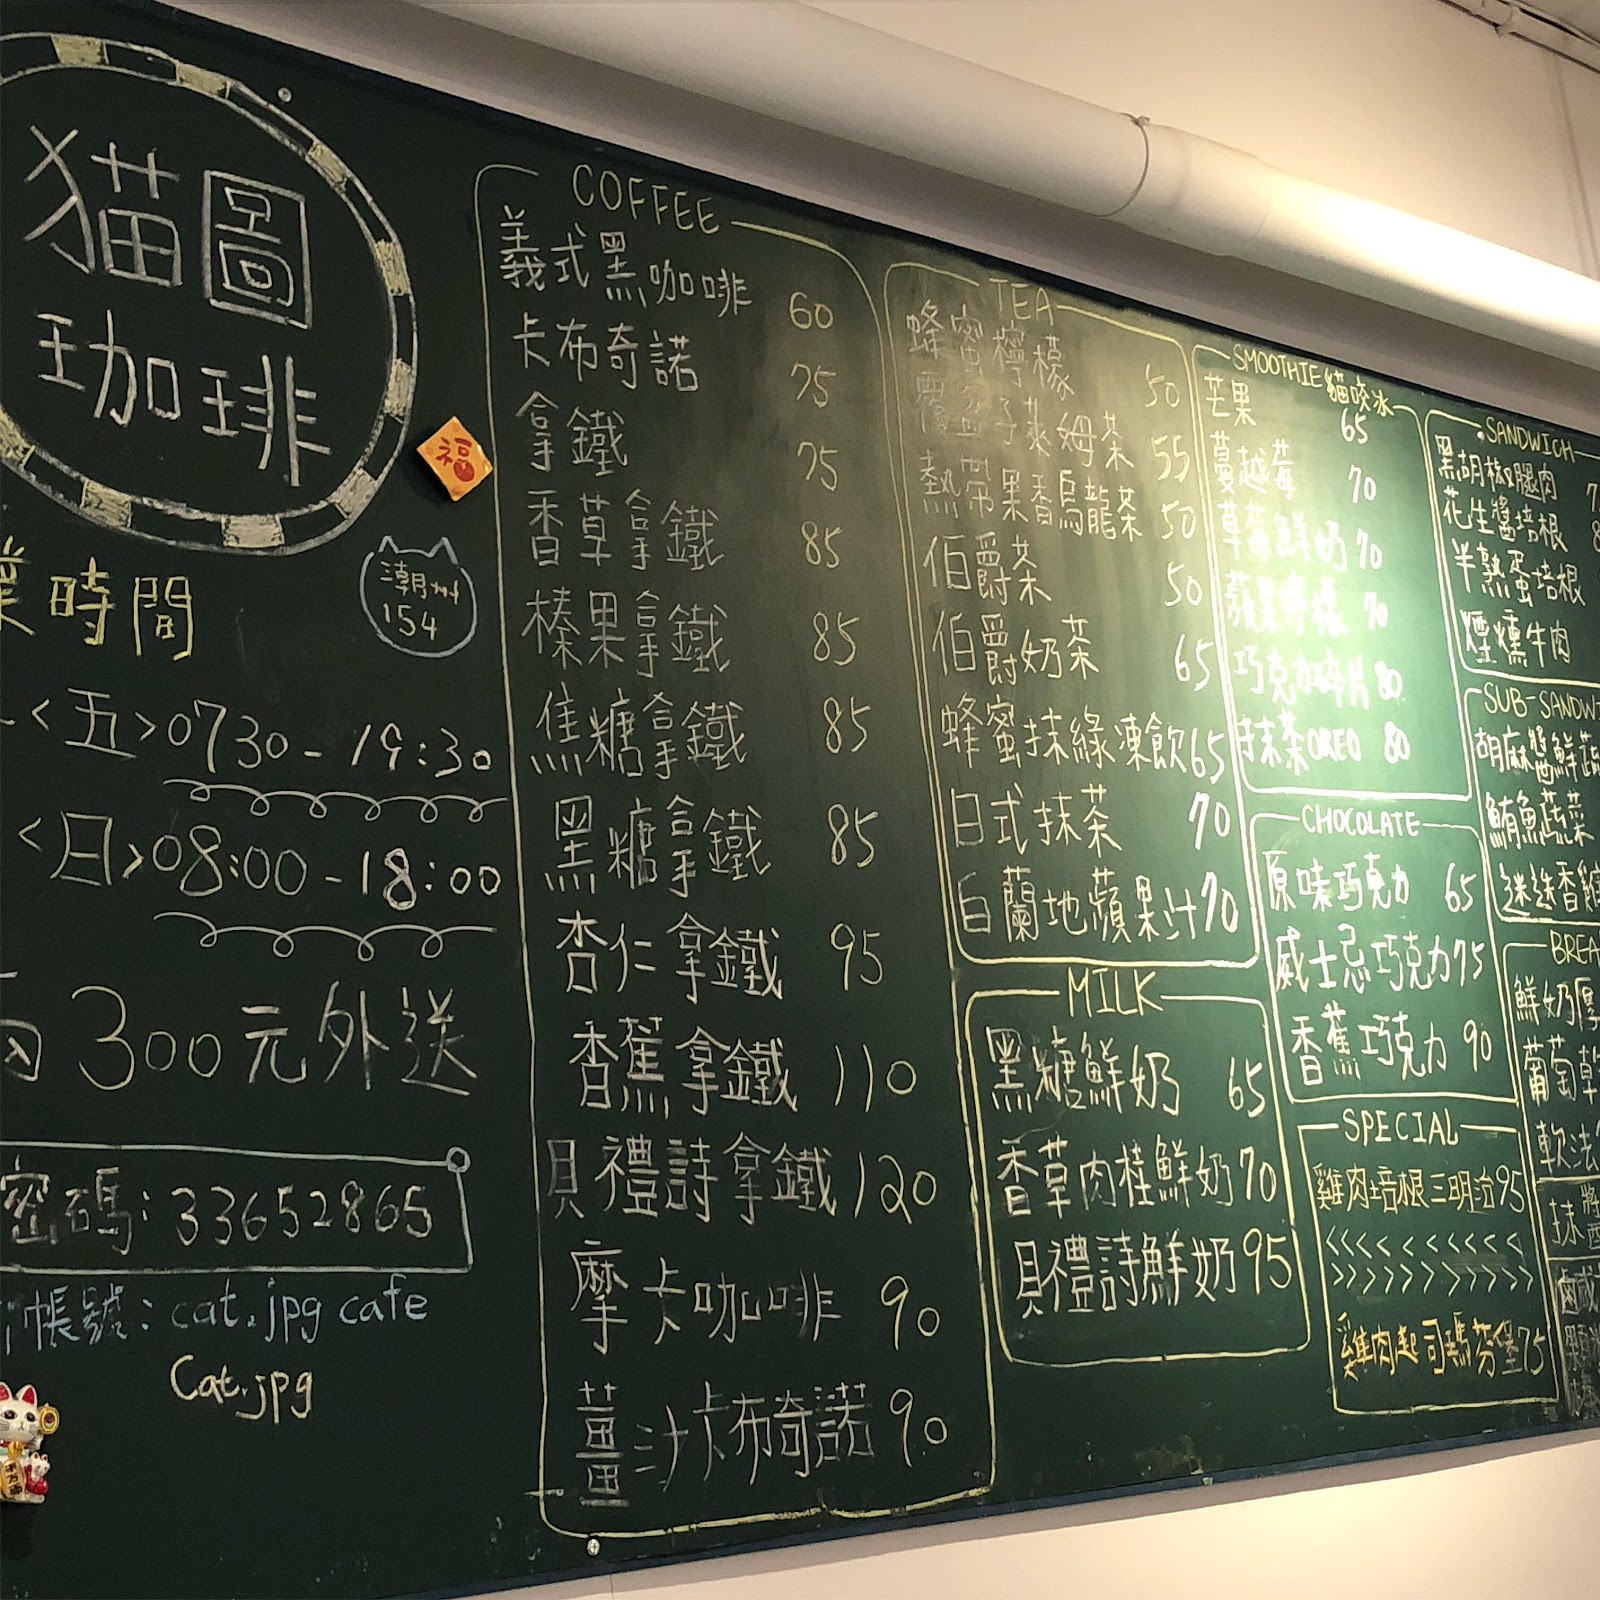 猫圖
珈琲
福
潮州
154
業時間
<五>0730-19:30
<日>08:00-18:00
300元外送
密碼:33652865
帳號:cat.jpg cafe
Cat.jpg
COFFEE
義式黑咖啡 60
卡布奇諾 75
拿鐵 75
香草拿鐵 85
榛果拿鐵 85
焦糖拿鐵 85
黑糖拿鐵 85
杏仁拿鐵 95
香蕉拿鐵 110
貝禮詩拿鐵 120
摩卡咖啡 90
薑汁卡布奇諾 90
TEA
蜂蜜檸檬 50
覆盆子蕪姆茶 55
熱帶果香烏龍茶 50
伯爵茶 50
伯爵奶茶 65
蜂蜜抹綠凍飲 65
日式抹茶 70
白蘭地蘋果汁 70
MILK
黑糖鮮奶 65
香草肉桂鮮奶 70
貝禮詩鮮奶 95
SMOOTHIE 貓咬冰
芒果 65
蔓越莓 70
草莓鮮奶 70
蘋果檸檬 70
巧克力碎片 80
抹茶OREO 80
CHOCOLATE
原味巧克力 65
威士忌巧克力 75
香蕉巧克力 90
SPECIAL
雞肉培根三明治 95
<<<<<<<<<<
>>>>>>>>>>
雞肉起司瑪芬堡 75
SANDWICH
黑胡椒腿肉
花生醬培根
半熟蛋培根
煙燻牛肉
SUB-SANDWI
胡麻醬鮮蔬
鮪魚蔬菜
迷迭香雞
BREA
鮮奶厚
葡萄乾
軟法
抹
鹹